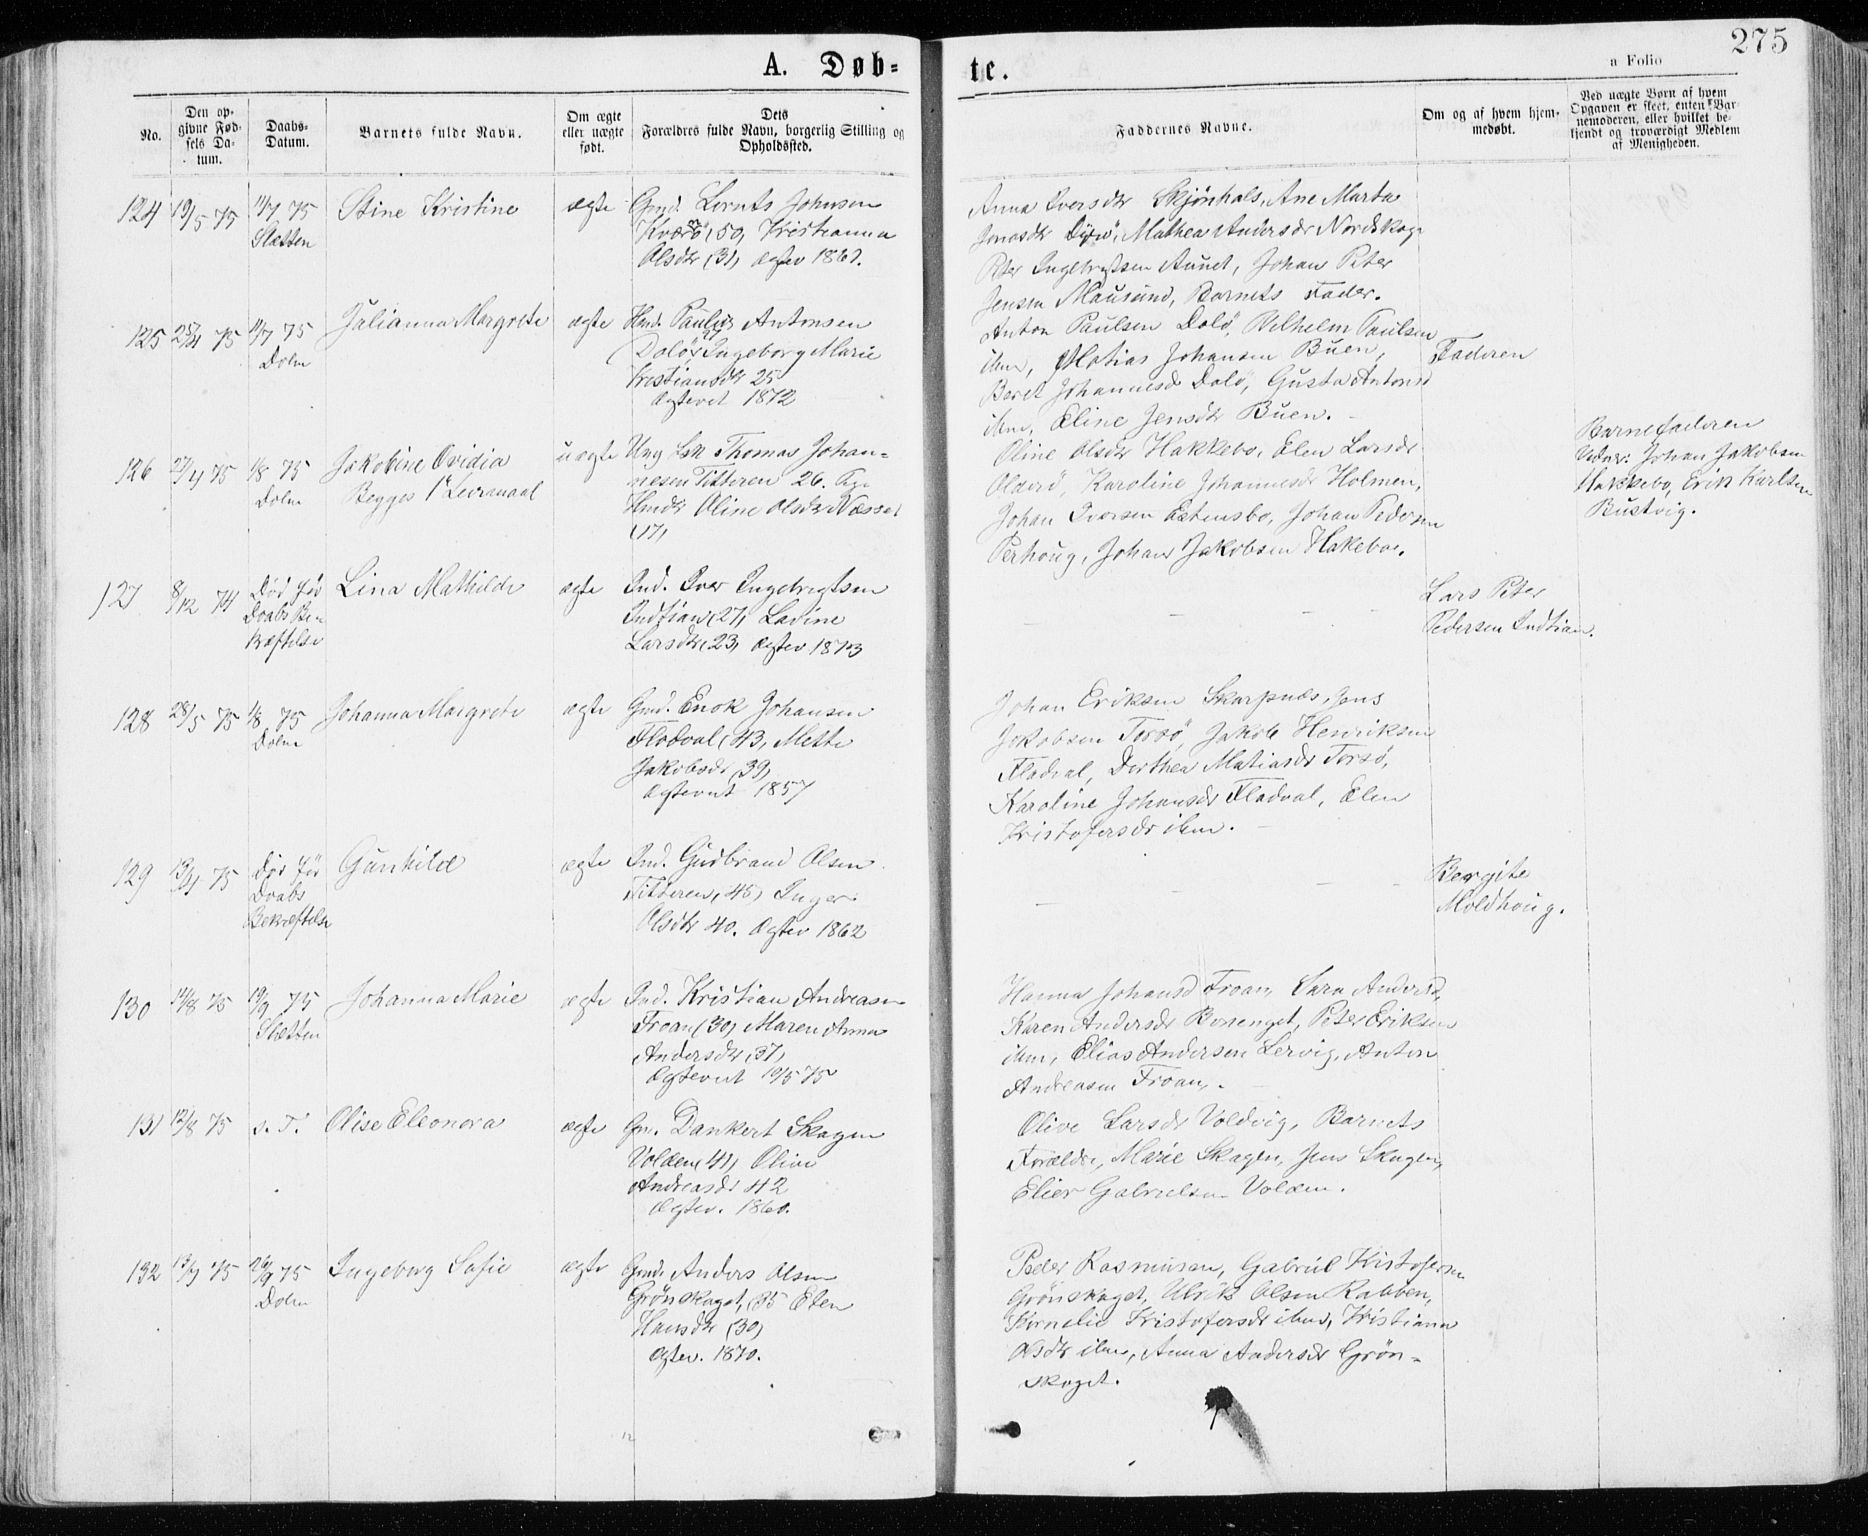 275
A. Døb=
te.
a Folio
No.
Den op-
givne Fød-
sels Da-
tum.
Daabs-
Datum.
Barnets fulde Navn.
Om ægte
eller uægte
født.
Dets
Forældres fulde Navn, borgerlig Stilling og
Opholdssted.
Faddernes Navne.
Om og af hvem hjem-
medøbt.
Ved uægte Børn af hvem
Opgaven er skeet, enten Bar-
nemoderen, eller hvilket be-
kjendt og troværdigt Medlem
af Menigheden.
124 19/5 75 11/7 75 Stine Kristine ægte Gmd. Lornts Johnsen
Slætten Kværø (50) Kristianna
Olsdtr (31) ægtev 1861.
Anna Iversdtr Skjønhals, Ane Marta
Jonasdtr Dyrø, Mathea Andersdr Nordskag
Peter Ingebrigtsen Aunet, Johan Peter
Jensen Mausund, Barnets Fader.
125 25/4 75 11/7 75 Julianna Margrete ægte Hmd. Paulus Antonsen
Dolm Dolø, Ingeborg Marie
Kristiansdtr 25
Ægteviet 1872
Anton Paulsen Dolø, Vilhelm Paulsen
ibm, Matias Johansen Buen,
Beret Johannesd Dolø, Gusta Antonsd
ibm, Eline Jensdtr Buen.
Faderen
126 27/4 75 1/8 75 Jakobine Ovidia uægte Ung Thomas Johan-
Dolm Begges 1ste Leiermaal nesen Titteren 26. Pge
Oline Olsdtr Næsset
(17)
Oline Olsdtr Hakkebo, Elen Larsdr
Olderø, Karoline Johannesdr Holmen,
Johan Iversen Estensbo, Johan Pedersen
Perhoug, Johan Jakobsen Hakeboe.
Barnefaderen
Vidner: Johan Jakobsen
Hakkebo, Erik Karlsen
Bustvig.
127 8/12 74 Død før Lina Mathilde ægte Ind. Iver Ingebrigtsen
Daabs Be- Indtian (27) Ladine
kræftelse Larsdtr (23) ægtev 1873
Lars Peter
Pedersen Indtian.
128 28/5 75 1/8 75 Johanna Margrete ægte Gmd. Enok Johansen
Dolm Fladval (43, Mette
Jakobsdr (39)
Ægteviet 1857
Johan Eriksen Skarpnæs, Jens
Jakobsen Torsø, Jakob Henriksen
Fladval, Dorthea Matiasdr Torsø,
Karoline Johansdr Fladval, Elen
Kristofersdr ibm.
129 75 Død før Gunhild ægte Ind. Gudbrand Olsen
Daabs Titteren, 45) Inger
Bekræftelse Olsdtr 40. Ægtev 1862
Bergite
Moldhoug.
130 14/8 75 19/9 75 Johanna Marie ægte Ind. Kristian Andreasen
Slætten Froan (30) Maren Anna
Andersdtr (37)
Ægteviet 10/5 75
Hanna Johansd Froan, Sara Andersd,
Karen Andersdr Borrenget, Peter Eriksen
ibm, Elias Andersen Lervig, Anton
Andreasen Froan.
131 12/8 75 s. T. Olise Eleonora ægte Gm. Dankert Skagen
Volden (41) Olive
Andreasdr 42
Ægtev. 1860.
Olive Larsdr Voldvig, Barnets
Forældre, Marie Skagen, Jens Skagen,
Elier Gabrielsen Volden.
132 13/9 75 26/9 75 Ingeborg Sofie ægte Gmd. Anders Olsen
Dolm Grønskaget, (35 Elen
Hansdtr (30)
Ægtev. 1870.
Peder Rasmusen, Gabriel Kristofersen
Grønskaget, Ulrik Olsen Rabben,
Kornelie Kristofersdr ibid, Kristiana
Olsdtr ibm, Anna Andersdr Grøn-
skaget.